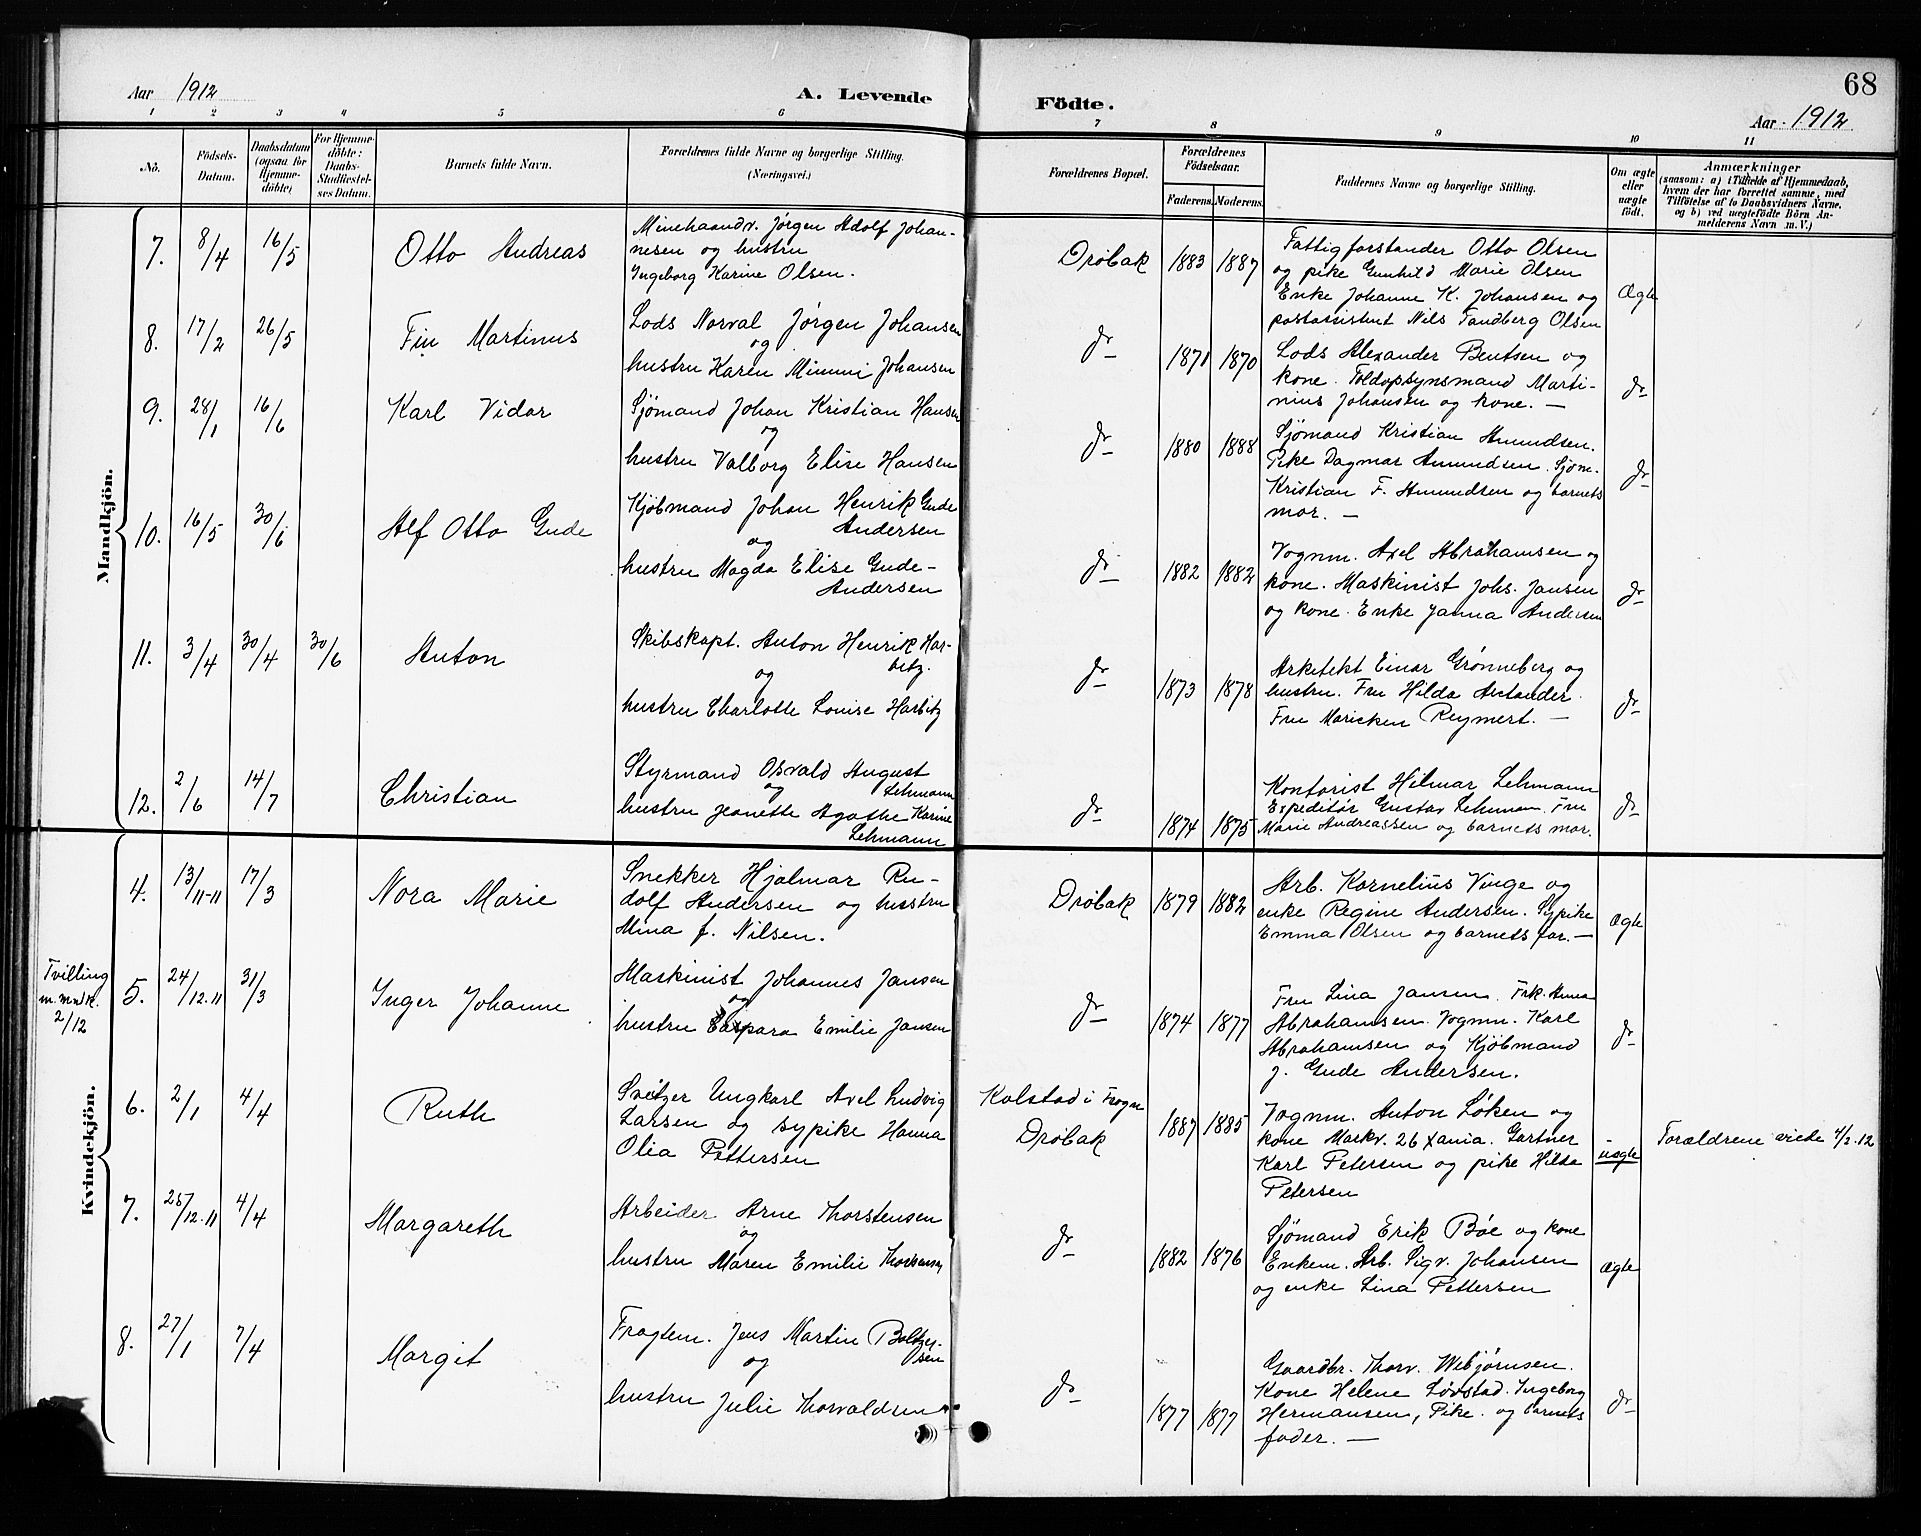 68
Aar 1912
A. Levende
Födte.
Aar 1912
1 2 3 4 5 6 7 8 9 10 11
No.
Födsels-
Datum.
Daabsdatum
(ogsaa for
Hjemme-
döbte)
For Hjemme-
döbte:
Daabs-
Stadfæstel-
ses Datum.
Barnets fulde Navn.
Forældrenes fulde Navne og borgerlige Stilling.
(Næringsvei.)
Forældrenes Bopæl.
Forældrenes
Födselsaar.
Faderens. Moderens.
Faddernes Navne og borgerlige Stilling.
Om ægte
eller
uægte
födt.
Anmærkninger
(saasom: a) i Tilfælde af Hjemmedaab,
hvem der har forrettet samme, med
Tilföielse af to Daabsvidners Navne,
og b) ved uægtefödte Börn An-
melderens Navn m.V.)
Mandkjön.
7. 8/4 16/5 Otto Andreas
Minehaandv. Jörgen Adolf Johan-
nesen og hustru
Ingeborg Karine Olsen.
Dröbak 1883 1887
Fattigforstander Otto Olsen
og pike Gunhild Marie Olsen
Enke Johanne K. Johansen og
postassistent Nils Tandberg Olsen
Ægte
8. 17/2 26/5 Fin Martinus
Lods Norval Jörgen Johansen
og
hustru Karen Minni Johansen
do 1871 1870
Lods Alexander Bentsen og
kone. Toldopsynsmand Marti-
nius Johansen og kone. —
do
9. 28/1 16/6 Karl Vidar
Sjömand Johan Kristian Hansen
og
hustru Valborg Elise Hansen
do 1880 1888
Sjömand Kristian Amundsen.
Pike Dagmar Amundsen. Sjöm.
Kristian F. Amundsen og barnets
mor. —
do
10. 16/5 30/6 Alf Otto Gude
Kjöbmand Johan Henrik Gude
Andersen
og
hustru Magda Elise Gude-
Andersen
do 1882 1882
Vognm. Axel Abrahamsen og
kone. Maskinist Johs. Jansen
og kone. Enke Janna Andersen
do
11. 3/4 30/4 30/6 Anton
Skibskapt. Anton Henrik Har-
bitz.
og
hustru Charlotte Louise Harbitz
do 1873 1878
Arkitekt Einar Grönneberg og
hustru. Fru Hilda Arctander.
Fru Maricken Reymert. —
do
12. 2/6 14/7 Christian
Styrmand Osvald August
og Lehmann
hustru Jeanette Agathe Karine
Lehmann
do 1874 1875
Kontorist Hilmar Lehmann
Expeditör Gustav Lehman. Fru
Marie Andreassen og barnets mor.
do
Kvindekjön.
4. 13/11-11 17/3 Nora Marie
Snekker Hjalmar Ru-
dolf Andersen og hustru
Mina f. Nilsen.
Dröbak 1879 1882
Arb. Kornelius Vinge og
enke Regine Andersen. Sypike
Emma Olsen og barnets far. —
ægte
Tvilling
m. mndk.
2/12
5. 24/12.11 31/3 Inger Johanne
Maskinist Johannes Jansen
og
hustru Caspara Emilie Jansen
do 1874 1877
Fru Lina Jansen. Frk. Anna
Abrahamsen. Vognm. Karl
Abrahamsen og Kjöbmand
J. Gude Andersen.
do
6. 2/1 4/4 Ruth
Sveitzer Ungkarl Axel Ludvig
Larsen og sypike Hanna
Olia Pettersen
Kolstad i Frogn
Dröbak
1887 1885
Vognm. Anton Löken og
kone Markv. 26 Xania. Gartner
Karl Petersen og pike Hilda
Petersen
uægte
Forældrene viede 4/2 12
7. 25/12.11 4/4 Margareth
Arbeider Arne Thorstensen
og
hustru Maren Emilie Thorstensen
do 1882 1876
Sjömand Erik Böe og kone
Enkem. Arb. Sigv. Johansen
og enke Lina Pettersen
ægte
8. 27/1 7/4 Margit
Fragtem. Jens Martin Baltzer-
sen
og
hustru Julie Thorvaldsen
do 1877 1877
Gaardbr. Thorv. Webjörnsen.
Kone Helene Lövstad. Ingeborg
Hermansen, Pike. og barnets
fader. —
do